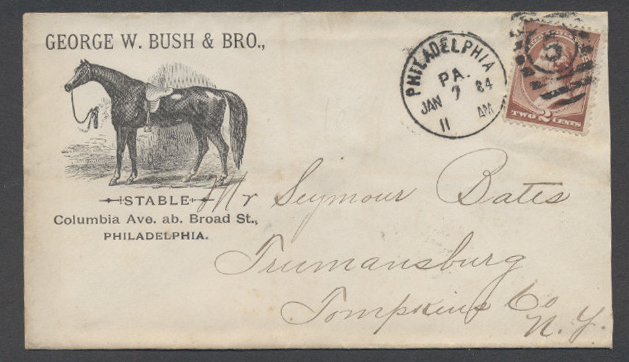 GEORGE W. BUSH & BRO.,
STABLE
Columbia Ave. ab. Broad St.,
PHILADELPHIA.
PHILADELPHIA
PA.
JAN 7 84
11 AM
5
TWO 2 CENTS
Mr Seymour Bates
Trumansburg
Tompkins Co
N.Y.